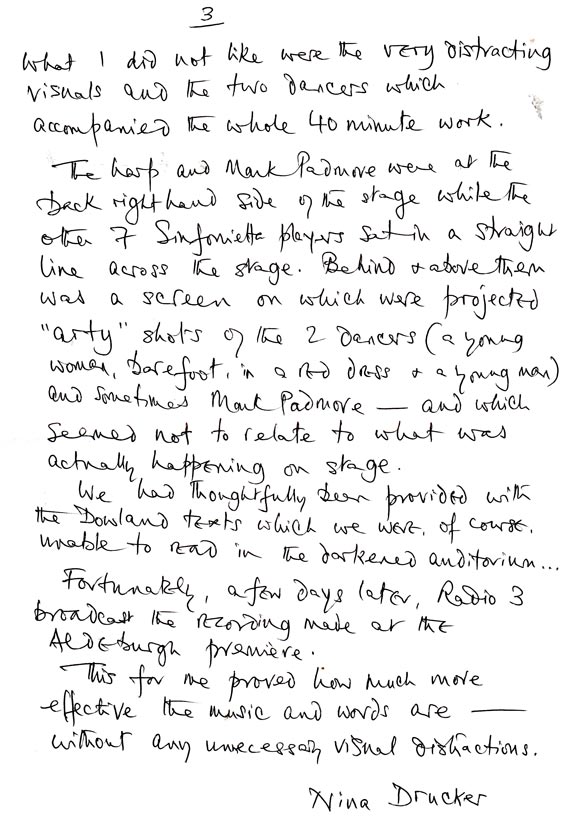 3
What I did not like were the very distracting
visuals and the two dancers which
accompanied the whole 40 minute work.
The harp and Mark Padmore were at the
back right hand side of the stage while the
other 7 Sinfonietta players sat in a straight
line across the stage. Behind + above them
was a screen on which were projected
"arty" shots of the 2 dancers (a young
woman, barefoot, in a red dress + a young man)
and sometimes Mark Padmore — and which
seemed not to relate to what was
actually happening on stage.
We had thoughtfully been provided with
the Dowland texts which we were, of course,
unable to read in the darkened auditorium...
Fortunately, a few days later, Radio 3
broadcast the recording made at the
Aldeburgh première.
This for me proved how much more
effective the music and words are —
without any unnecessary visual distractions.
Nina Drucker